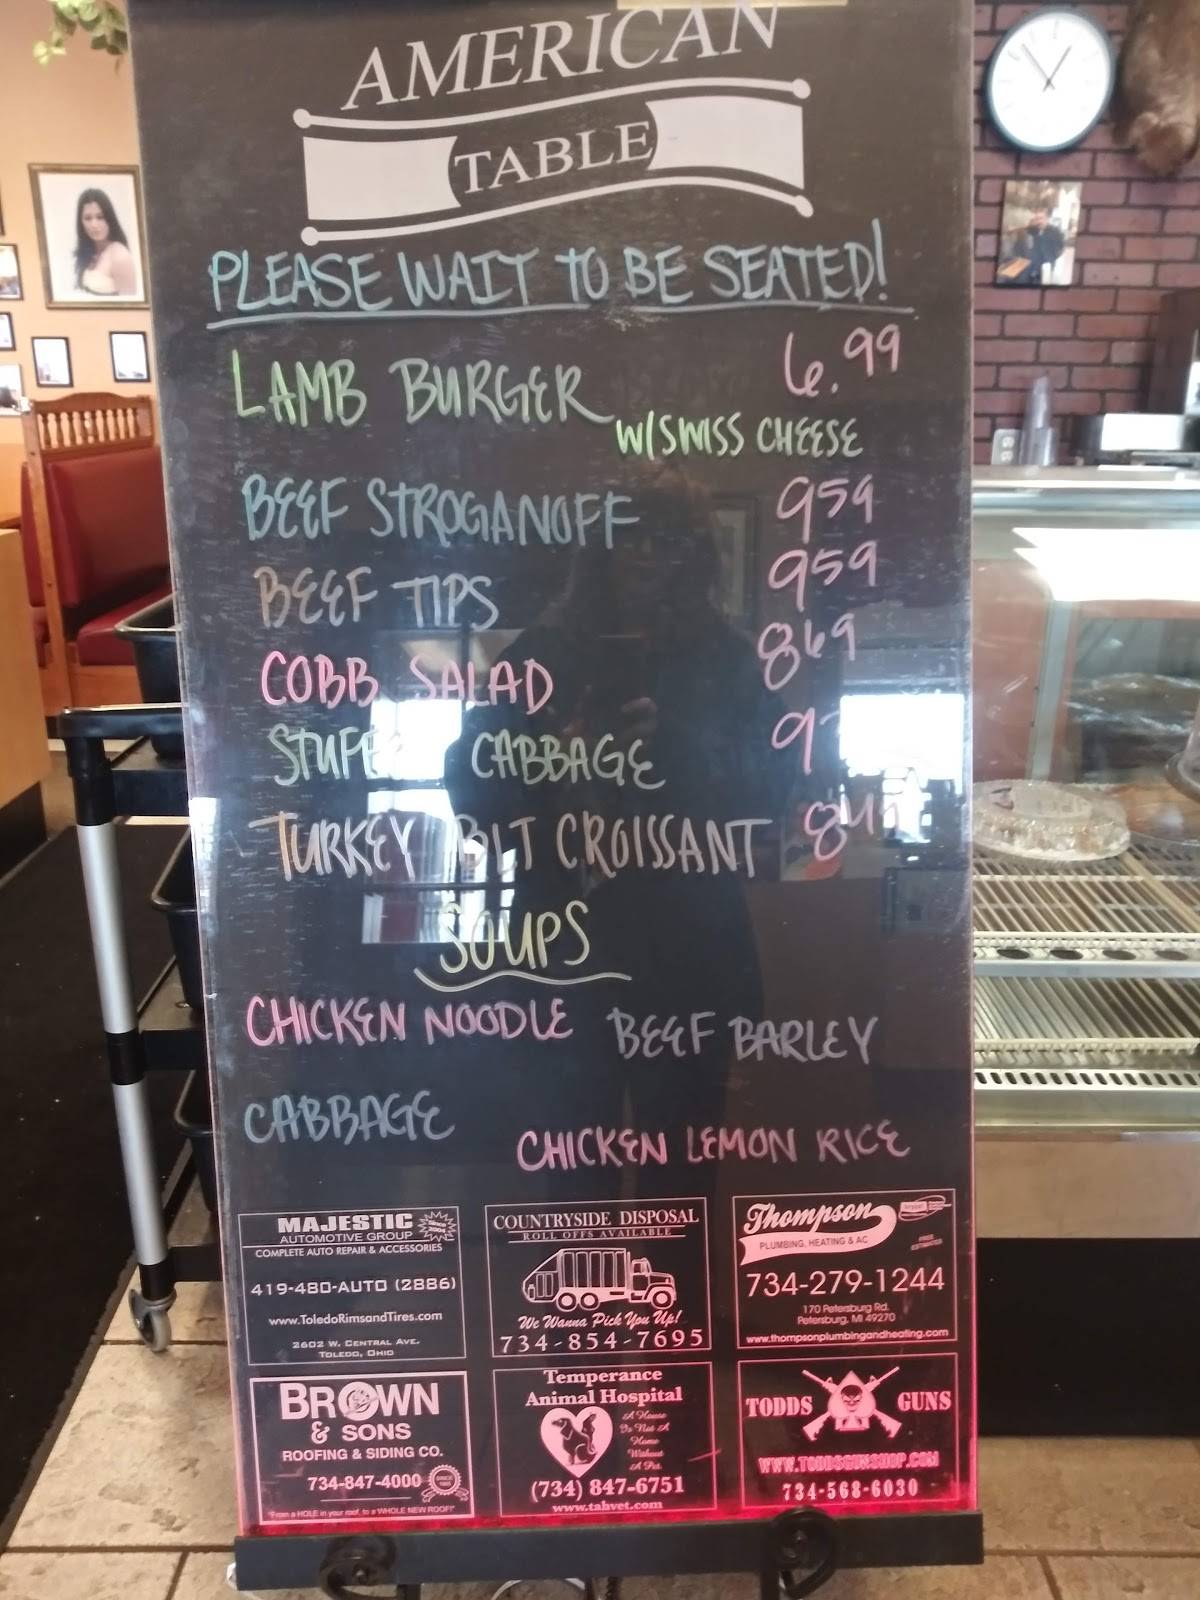 AMERICAN
TABLE
PLEASE WAIT TO BE SEATED!
LAMB BURGER 6.99
W/SWISS CHEESE
BEEF STROGANOFF 959
BEEF TIPS 959
COBB SALAD 869
CABBAGE
TURKEY BLT CROISSANT
SOUPS
CHICKEN NOODLE BEEF BARLEY
CABBAGE
CHICKEN LEMON RICE
MAJESTIC
AUTOMOTIVE GROUP
COMPLETE AUTO REPAIR & ACCESSORIES
419-480-AUTO (2886)
www.ToledoRimsandTires.com
2602 W. CENTRAL AVE.
TOLEDO, OHIO
COUNTRYSIDE DISPOSAL
ROLL OFFS AVAILABLE
We Wanna Pick You Up!
734-854-7695
Thompson
PLUMBING, HEATING & AC
FREE
ESTIMATES
734-279-1244
170 Petersburg Rd.
Petersburg, MI 49270
www.thompsonplumbingandheating.com
BROWN
& SONS
ROOFING & SIDING CO.
734-847-4000
"From a HOLE in your roof, to a WHOLE NEW ROOF!"
Temperance
Animal Hospital
A House
Is Not A
Home
Without
A Pet.
(734) 847-6751
www.tahvet.com
TODDS GUNS
WWW.TODDSGUNSHOP.COM
734-568-6030